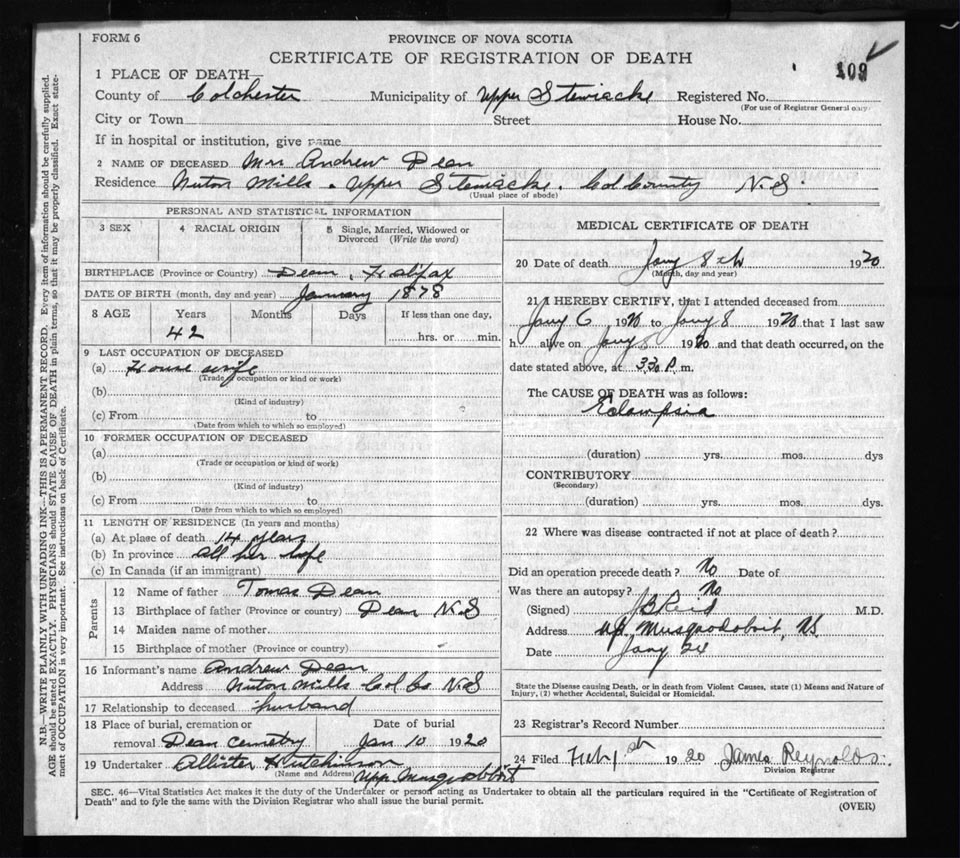 FORM 6
PROVINCE OF NOVA SCOTIA
CERTIFICATE OF REGISTRATION OF DEATH
109
1 PLACE OF DEATH—
County of Colchester Municipality of Upper Stewiacke Registered No.
(For use of Registrar General only)
City or Town Street House No.
If in hospital or institution, give name
2 NAME OF DECEASED Mrs Andrew Dean
Residence Nuton Mills. Upper Stewiacke. Col County N.S.
(Usual place of abode)
PERSONAL AND STATISTICAL INFORMATION
3 SEX 4 RACIAL ORIGIN 5 Single, Married, Widowed or Divorced (Write the word)
BIRTHPLACE (Province or Country) Dean, Halifax
DATE OF BIRTH (month, day and year) January 1878
8 AGE Years Months Days If less than one day,
42 hrs. or min.
9 LAST OCCUPATION OF DECEASED
(a) House wife
(Trade, occupation or kind or work)
(b)
(Kind of industry)
(c) From to
(Date from which to which so employed)
10 FORMER OCCUPATION OF DECEASED
(a)
(Trade or occupation or kind of work)
(b)
(Kind of industry)
(c) From to
(Date from which to which so employed)
11 LENGTH OF RESIDENCE (In years and months)
(a) At place of death 14 years
(b) In province all her life
(c) In Canada (if an immigrant)
Parents
12 Name of father Tomas Dean
13 Birthplace of father (Province or country) Dean N.S
14 Maiden name of mother
15 Birthplace of mother (Province or country)
16 Informant's name Andrew Dean
Address Nuton Mills Col Co N.S
17 Relationship to deceased husband
18 Place of burial, cremation or Date of burial
removal Dean Cemetry Jan 10 1920
19 Undertaker Allister Hutchinson
(Name and Address) Upp. Musquodoboit
MEDICAL CERTIFICATE OF DEATH
20 Date of death Jany 8th 1920
(Month, day and year)
21 I HEREBY CERTIFY, that I attended deceased from
Jany 6 1920 to Jany 8 1920 that I last saw
h alive on Jany 8 1920 and that death occurred, on the
date stated above, at 3 30 P. m.
The CAUSE OF DEATH was as follows:
Eclampsia
(duration) yrs. mos. dys
CONTRIBUTORY
(Secondary)
(duration) yrs. mos. dys.
22 Where was disease contracted if not at place of death?
Did an operation precede death? No Date of
Was there an autopsy? No
(Signed) JB Reid M.D.
Address Up. Musquodoboit, NS.
Date Jany 24
State the Disease causing Death, or in death from Violent Causes, state (1) Means and Nature of
Injury, (2) whether Accidental, Suicidal or Homicidal.
23 Registrar's Record Number
24 Filed Feb 1st 1920 James Reynolds.
Division Registrar
SEC. 46—Vital Statistics Act makes it the duty of the Undertaker or person acting as Undertaker to obtain all the particulars required in the "Certificate of Registration of
Death" and to fyle the same with the Division Registrar who shall issue the burial permit.
(OVER)
N.B.—WRITE PLAINLY WITH UNFADING INK—THIS IS A PERMANENT RECORD. Every item of information should be carefully supplied.
AGE should be stated EXACTLY. PHYSICIANS should STATE CAUSE OF DEATH in plain terms, so that it may be properly classified. Exact state-
ment of OCCUPATION is very important. See instructions on back of Certificate.